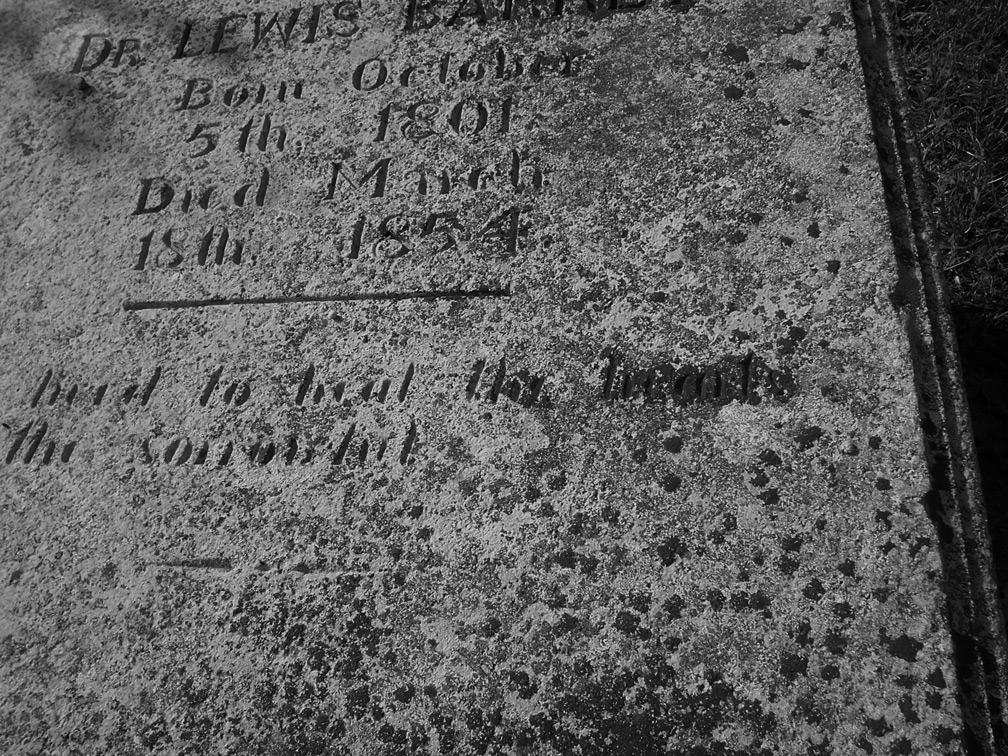 Dr. LEWIS
Born October
5th. 1801.
Died March
18th. 1854.
to heal the hearts
the sorrowful